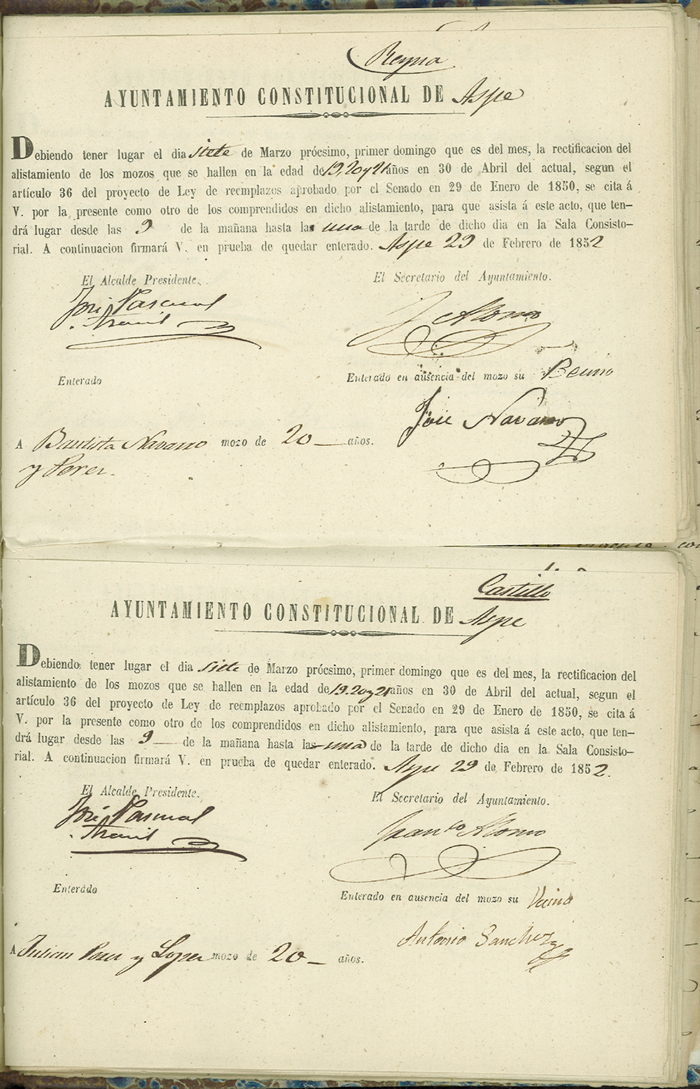 Reyna
AYUNTAMIENTO CONSTITUCIONAL DE Aspe
Debiendo tener lugar el dia siete de Marzo prócsimo, primer domingo que es del mes, la rectificacion del
alistamiento de los mozos que se hallen en la edad de 19, 20 y 21 años en 30 de Abril del actual, segun el
artículo 36 del proyecto de Ley de reemplazos aprobado por el Senado en 29 de Enero de 1850, se cita á
V. por la presente como otro de los comprendidos en dicho alistamiento, para que asista á este acto, que ten-
drá lugar desde las 9 de la mañana hasta las una de la tarde de dicho dia en la Sala Consisto-
rial. A continuacion firmará V. en prueba de quedar enterado. Aspe 29 de Febrero de 1852
El Alcalde Presidente.
El Secretario del Ayuntamiento.
José Pascual
Alonso
Enterado
Enterado en ausencia del mozo su
José Navarro
A Bautista Navarro mozo de 20 años.
y Perez.
Castillo
AYUNTAMIENTO CONSTITUCIONAL DE Aspe
Debiendo tener lugar el dia siete de Marzo prócsimo, primer domingo que es del mes, la rectificacion del
alistamiento de los mozos que se hallen en la edad de 19, 20 y 21 años en 30 de Abril del actual, segun el
artículo 36 del proyecto de Ley de reemplazos aprobado por el Senado en 29 de Enero de 1850, se cita á
V. por la presente como otro de los comprendidos en dicho alistamiento, para que asista á este acto, que ten-
drá lugar desde las 9 de la mañana hasta las una de la tarde de dicho dia en la Sala Consisto-
rial. A continuacion firmará V. en prueba de quedar enterado. Aspe 29 de Febrero de 1852.
El Alcalde Presidente.
El Secretario del Ayuntamiento.
José Pascual
Alonso
Enterado
Enterado en ausencia del mozo su Vecino
Antonio Sanchez
A Julian Perez y Lopez mozo de 20 años.